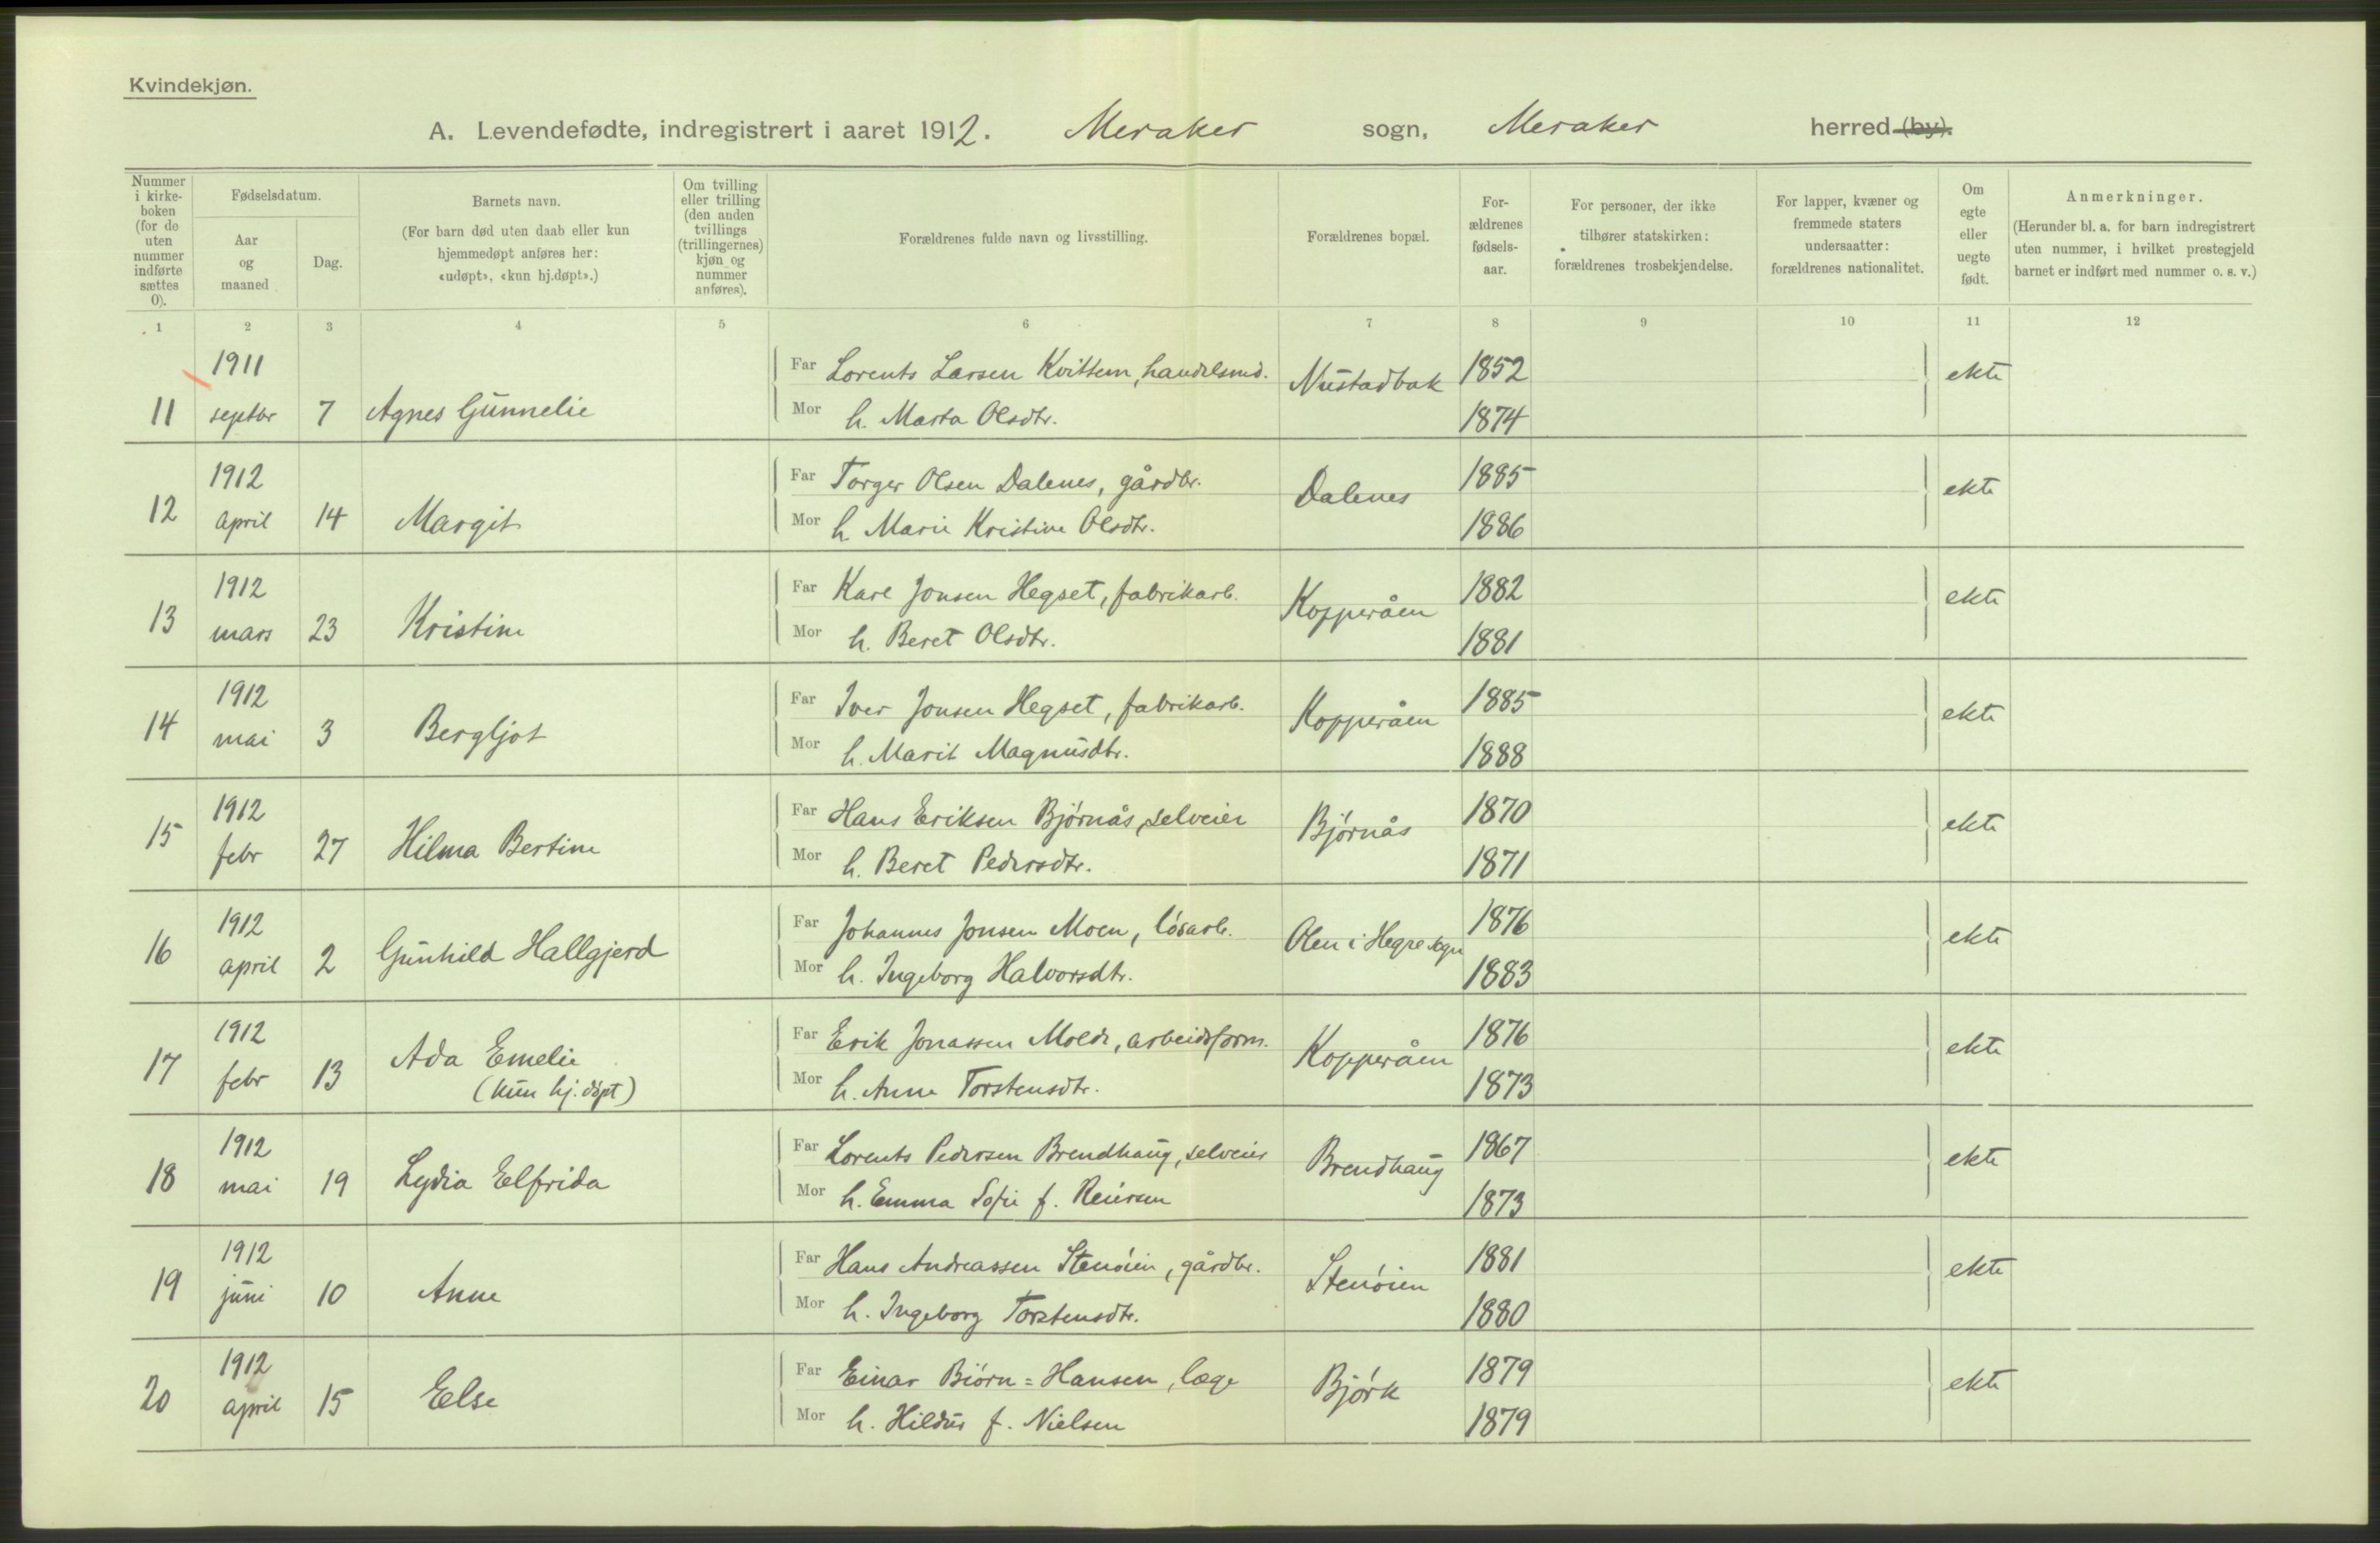 Kvindekjøn.
A. Levendefødte, indregistrert i aaret 1912. Meraker sogn, Meraker herred (by).
Nummer i kirke-boken (for de uten nummer indførte sættes 0).
Fødselsdatum.
Aar og maaned
Dag.
Barnets navn.
(For barn død uten daab eller kun hjemmedøpt anføres her: «udøpt», «kun hj.døpt».)
Om tvilling eller trilling (den anden tvillings (trillingernes) kjøn og nummer anføres).
Forældrenes fulde navn og livsstilling.
Forældrenes bopæl.
For-ældrenes fødsels-aar.
For personer, der ikke tilhører statskirken: forældrenes trosbekjendelse.
For lapper, kvæner og fremmede staters undersaatter: forældrenes nationalitet.
Om egte eller uegte født.
Anmerkninger.
(Herunder bl. a. for barn indregistrert uten nummer, i hvilket prestegjeld barnet er indført med nummer o. s. v.)
1 2 3 4 5 6 7 8 9 10 11 12
1911 Far Lorents Larsen Kvittem, handelsmd. Nustadbak 1852 ekte
11 septbr 7 Agnes Gunnelie Mor h. Marta Olsdtr. 1874
1912 Far Torger Olsen Dalenes, gårdbr. Dalenes 1885 ekte
12 april 14 Margit Mor h. Marie Kristine Olsdtr. 1886
1912 Far Karl Jonsen Hegset, fabrikarb. Kopperåen 1882 ekte
13 mars 23 Kristine Mor h. Beret Olsdtr. 1881
1912 Far Iver Jonsen Hegset, fabrikarb. Kopperåen 1885 ekte
14 mai 3 Bergljot Mor h. Marit Magnusdtr. 1888
1912 Far Hans Eriksen Bjørnås, selveier Bjørnås 1870 ekte
15 febr 27 Hilma Bertine Mor h. Beret Pedersdtr. 1871
1912 Far Johannes Jonsen Moen, løsarb. Olen i Hegre sogn 1876 ekte
16 april 2 Gunhild Hallgjerd Mor h. Ingeborg Halvorsdtr. 1883
1912 Far Erik Jonassen Molde, arbeidsform. Kopperåen 1876 ekte
17 febr 13 Ada Emelie Mor h. Anne Torstensdtr. 1873
(kun hj. døpt)
1912 Far Lorents Pedersen Brendhaug, selveier Brendhaug 1867 ekte
18 mai 19 Lydia Elfrida Mor h. Emma Sofie f. Reiersen 1873
1912 Far Hans Andreassen Stenøien, gårdbr. Stenøien 1881 ekte
19 juni 10 Anne Mor h. Ingeborg Torstensdtr. 1880
1912 Far Einar Biørn=Hansen, læge Bjørk 1879 ekte
20 april 15 Else Mor h. Hildur f. Nielsen 1879